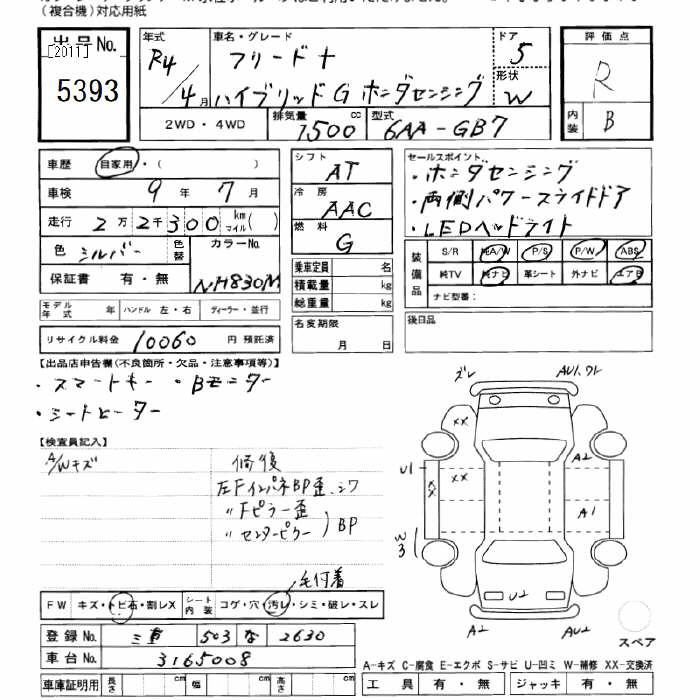 (複合機)対応用紙
出品No.
[2011]
5393
年式
R4/4月
車名・グレード
フリード+
ハイブリッドG ホンダセンシング
ドア
5
形状
W
2WD・4WD
排気量
1500
cc
型式
6AA-GB7
評価点
R
内装
B
車歴
自家用・( )
車検
9年7月
走行
2万2千300
km
マイル( )
色
シルバー
色替
カラーNo.
NH830M
保証書
有・無
シフト
AT
冷房
AAC
燃料
G
乗車定員 名
積載量 kg
総重量 kg
セールスポイント
・ホンダセンシング
・両側パワースライドドア
・LEDヘッドライト
装備品
S/R 純A/W P/S P/W ABS
純TV 純ナビ 革シート 外ナビ エアB
ナビ型番:
モデル年式 年
ハンドル 左・右
ディーラー・並行
名変期限
月 日
後日品
リサイクル料金
10060
円 預託済
【出品店申告欄(不良箇所・欠品・注意事項等)】
・スマートキー ・Bモニター
・シートヒーター
【検査員記入】
A/Wキズ
修復
左FインパネBP歪、シワ
〃Fピラー歪
〃センターピラー
BP
毛付着
ズレ
AU1.ワレ
XX
A2
U1
XX
XX
A1
W3
U2
A2
AU2
スペア
FW
キズ・トビ石・割レX
シート内装
コゲ・穴・汚レ・シミ・破レ・スレ
登録No.
三重 503 な 2630
車台No.
3165008
車庫証明用
長さ
幅
高さ
A-キズ C-腐食 E-エクボ S-サビ U-凹ミ W-補修 XX-交換済
工具 有・無 ジャッキ 有・無